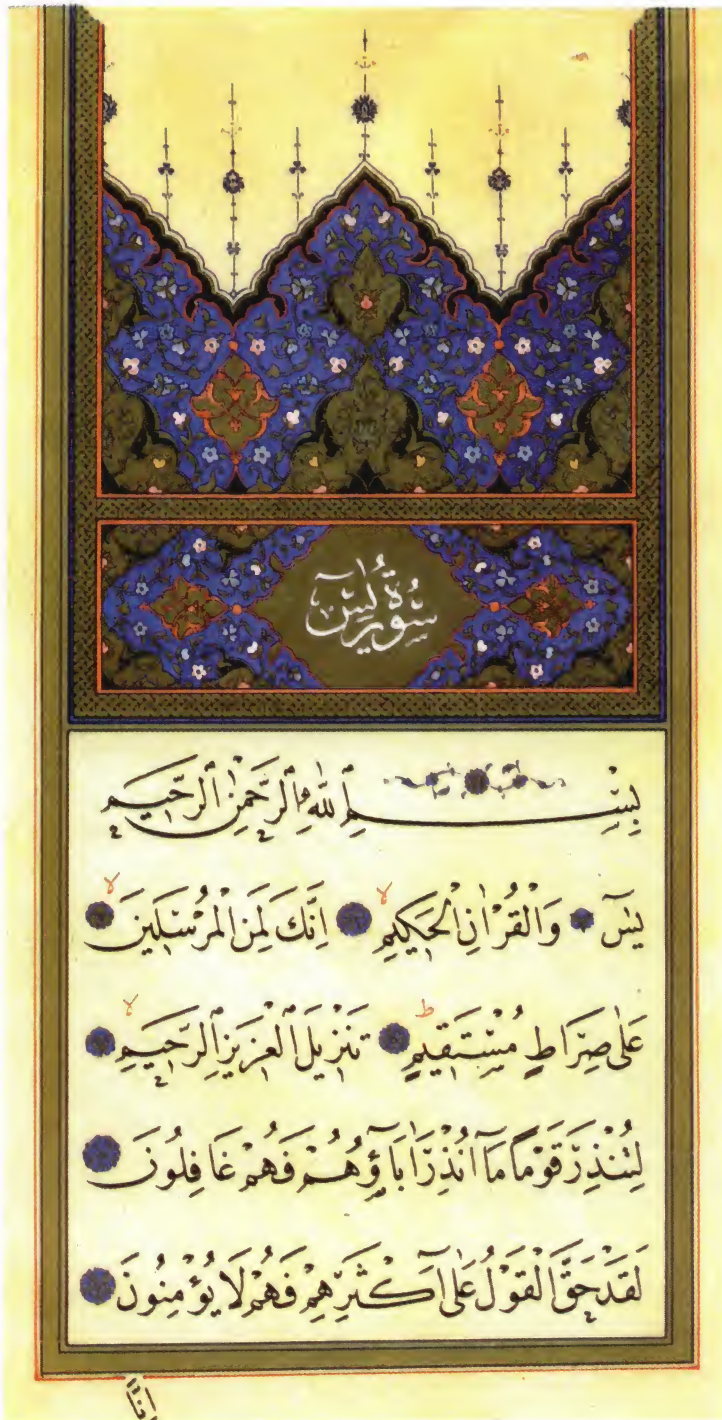 سُورَةُ يٰسٓ
بِسْمِ ٱللّٰهِ ٱلرَّحْمٰنِ ٱلرَّحِيمِ
يٰسٓ وَالْقُرْاٰنِ الْحَكِيمِ ۙ اِنَّكَ لَمِنَ الْمُرْسَلِينَ ۙ
عَلٰى صِرَاطٍ مُسْتَقِيمٍ ۜ تَنْزِيلَ ٱلْعَزِيزِ ٱلرَّحِيمِ ۙ
لِتُنْذِرَ قَوْمًا مَٓا اُنْذِرَ اٰبَٓاؤُهُمْ فَهُمْ غَافِلُونَ
لَقَدْ حَقَّ الْقَوْلُ عَلٰٓى اَكْثَرِهِمْ فَهُمْ لَا يُؤْمِنُونَ
اِنَّا